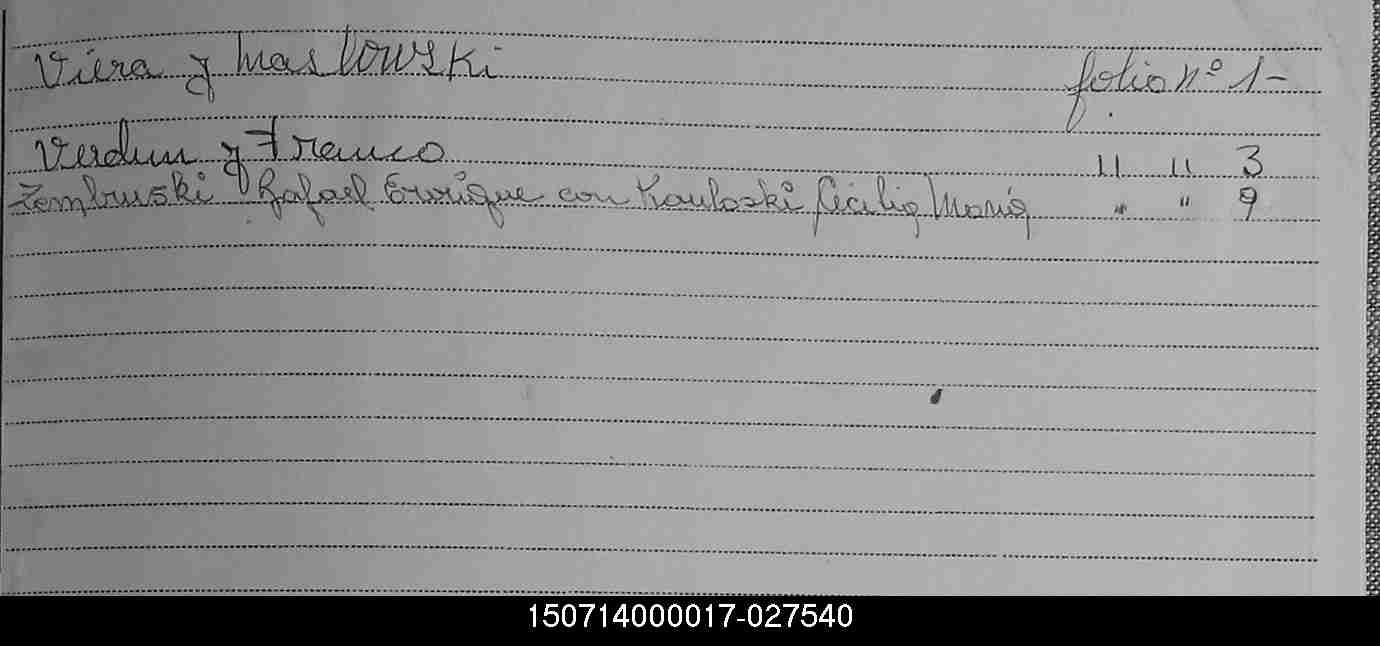 Viera y Maslowski folio nº 1-
Verdun y Franco " " 3
Zembruski Rafael Enrique con Kauloski Cicilia Maria " " 9
150714000017-027540